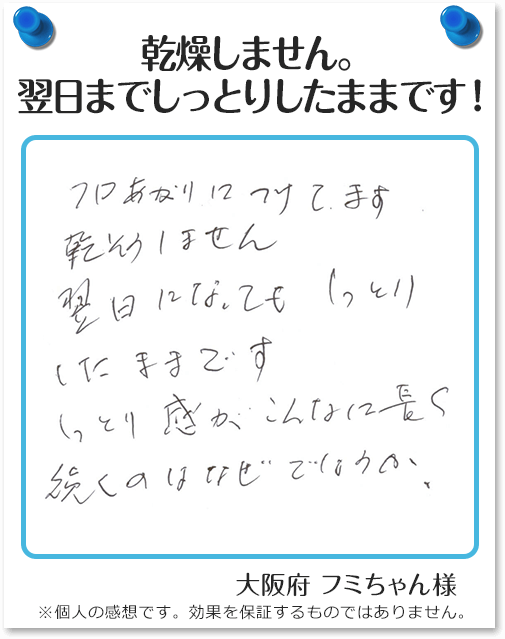 乾燥しません。
翌日までしっとりしたままです!
フロあがりにつけてます
乾そうしません
翌日になってもしっとり
したままです
しっとり感がこんなに長く
続くのはなぜでしょうか、
大阪府 フミちゃん様
※個人の感想です。効果を保証するものではありません。